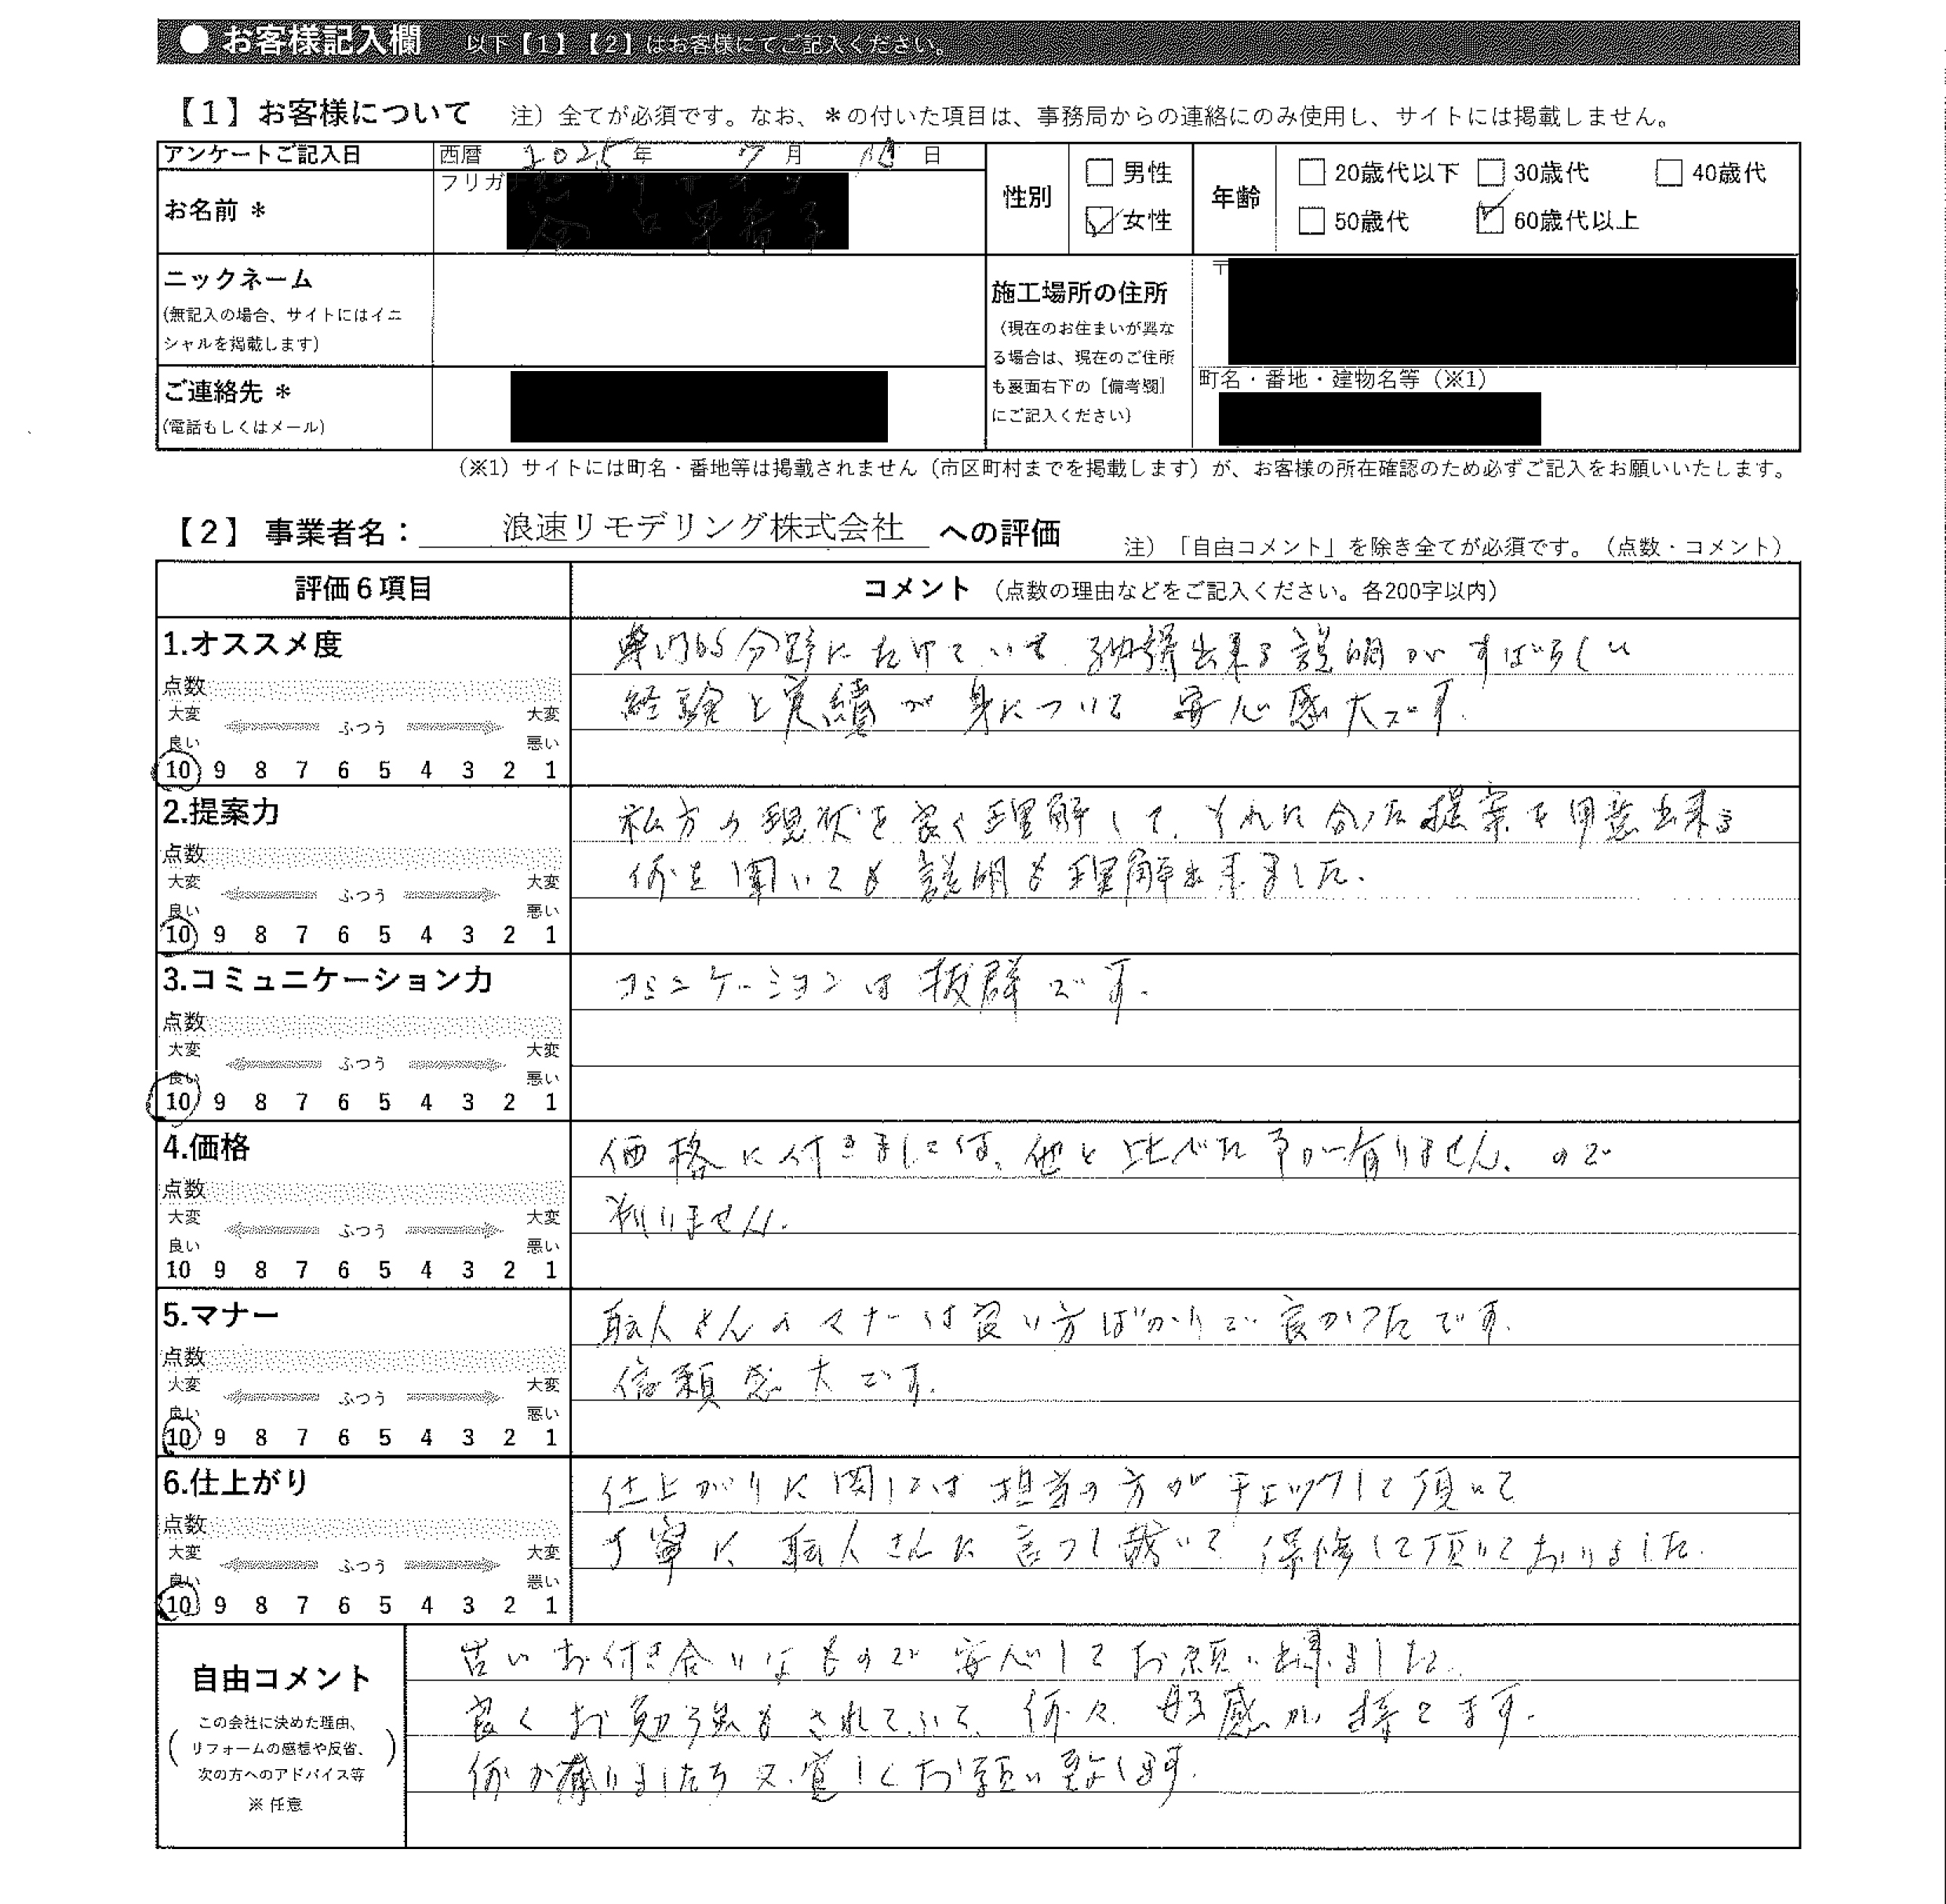 ● お客様記入欄 以下【1】【2】はお客様にてご記入ください。
【1】お客様について 注）全てが必須です。なお、＊の付いた項目は、事務局からの連絡にのみ使用し、サイトには掲載しません。
アンケートご記入日 西暦 2025年 7月 日
お名前 ＊ フリガ
性別 □男性 ☑女性
年齢 □20歳代以下 □30歳代 □40歳代
□50歳代 ☑60歳代以上
ニックネーム
(無記入の場合、サイトにはイニ
シャルを掲載します)
ご連絡先 ＊
(電話もしくはメール)
施工場所の住所
（現在のお住まいが異な
る場合は、現在のご住所
も裏面右下の［備考欄］
にご記入ください）
〒
町名・番地・建物名等（※1）
（※1）サイトには町名・番地等は掲載されません（市区町村までを掲載します）が、お客様の所在確認のため必ずご記入をお願いいたします。
【2】 事業者名： 浪速リモデリング株式会社 への評価 注）「自由コメント」を除き全てが必須です。（点数・コメント）
評価6項目 コメント （点数の理由などをご記入ください。各200字以内）
1.オススメ度
点数
大変 ふつう 大変
良い 悪い
10 9 8 7 6 5 4 3 2 1
専門的分野にたけていて 納得出来る説明がすばらしい
経験と実績が身についる 安心感大です.
2.提案力
点数
大変 ふつう 大変
良い 悪い
10 9 8 7 6 5 4 3 2 1
私方の現状を良く理解して、それに合った提案を用意出来る
何を聞いても説明も理解出来ました.
3.コミュニケーション力
点数
大変 ふつう 大変
良い 悪い
10 9 8 7 6 5 4 3 2 1
コミニケーションは抜群です.
4.価格
点数
大変 ふつう 大変
良い 悪い
10 9 8 7 6 5 4 3 2 1
価格に付きましては、他と比べた事が有りません.ので
判りません.
5.マナー
点数
大変 ふつう 大変
良い 悪い
10 9 8 7 6 5 4 3 2 1
職人さんのマナーは良い方ばかりで良かったです.
信頼感大です.
6.仕上がり
点数
大変 ふつう 大変
良い 悪い
10 9 8 7 6 5 4 3 2 1
仕上がりに関しては担当の方がチェックして頂いて
丁寧に職人さんに 保修して頂いておりました.
自由コメント
この会社に決めた理由、
リフォームの感想や反省、
次の方へのアドバイス等
※ 任意
古いお付き合いなもので安心してお願い出来ました.
良くお勉強もされていて、 好感が持てます.
何か有りましたら又.宜しくお願い致します.